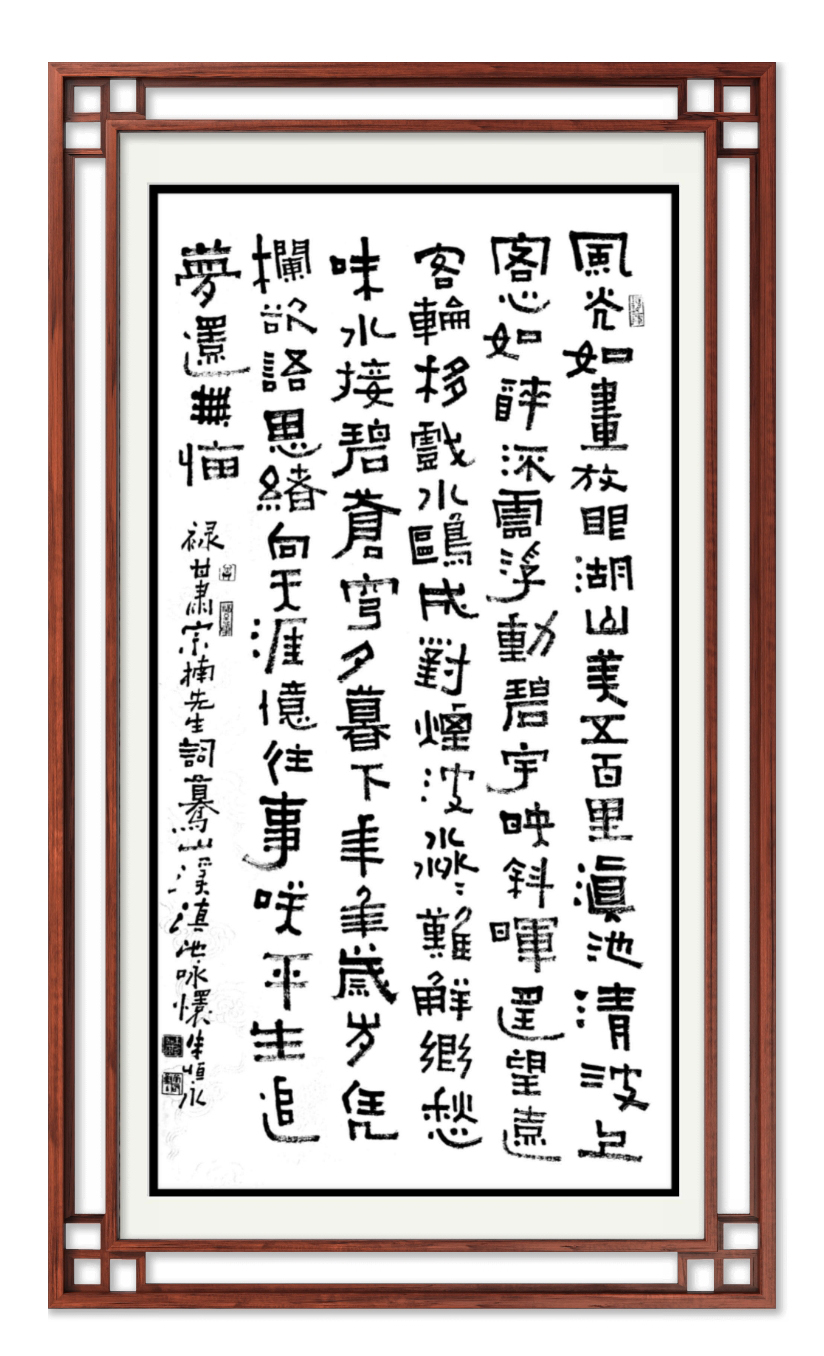 風光如畫放眼湖山美五百里滇池清波上
客心如醉流雲浮動碧宇映斜暉遥望遠
客輪移戲水鷗成對煙波淼〻難解鄉愁
味水接碧蒼穹夕暮下年年歲岁凭
欄欲語思緒向天涯憶往事咲平生追
夢還無悔
禄甘肅宗楠先生詞驀山溪滇池咏懷朱恒永